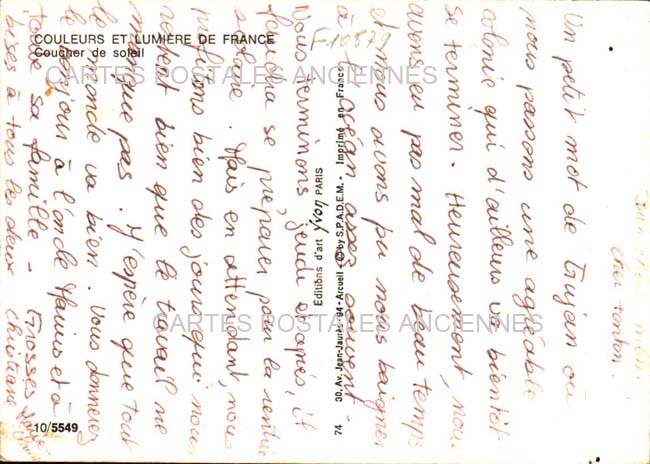 COULEURS ET LUMIÈRE DE FRANCE
Coucher de soleil
F-10879
CARTES POSTALES ANCIENNES
CARTES POSTALES ANCIENNES
Editions d'art yvon PARIS
30, Av. Jean-Jaurès - 94 - Arcueil - © by S.P.A.D.E.M. - Imprimé en France
74
10/5549
cher tonton!
Un petit mot de Gujan où
nous passons une agréable
colonie qui d'ailleurs va bientôt
se terminer. Heureusement, nous
avons eu pas mal de beau temps
et nous avons pu nous baigner
à l'océan assez souvent.
Nous terminons jeudi et après, il
faudra se préparer pour la rentrée
scolaire. Mais en attendant, nous
profitons bien des jours qui nous
restent bien que le travail ne
manque pas. J'espère que tout
le monde va bien. Vous donnerez
le bonjour à l'oncle et à
toute sa famille - Grosses
bises à tous les deux
Christiane